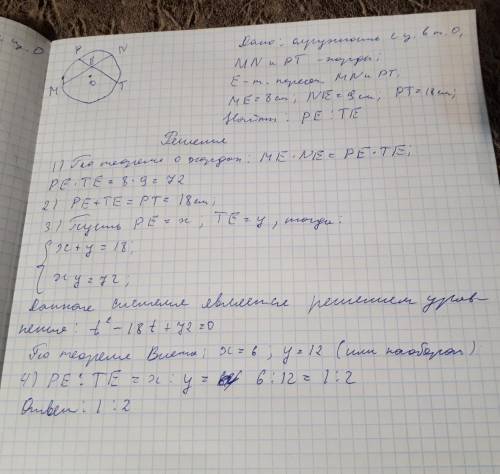 с ц. О
P N
E
O
M T
Дано: окружность с ц. в т. О,
MN и PT - хорды;
E - т. пересеч. MN и PT,
ME = 8 см, NE = 9 см, PT = 18 см;
Найти: PE : TE
Решение
1) По теореме о хордах: ME · NE = PE · TE;
PE · TE = 8 · 9 = 72
2) PE + TE = PT = 18 см;
3) Пусть PE = x, TE = y, тогда:
x + y = 18,
xy = 72;
Данная система является решением урав-
нения: t² - 18t + 72 = 0
По теореме Виета: x = 6, y = 12 (или наоборот)
4) PE : TE = x : y = 6 : 12 = 1 : 2
Ответ: 1 : 2